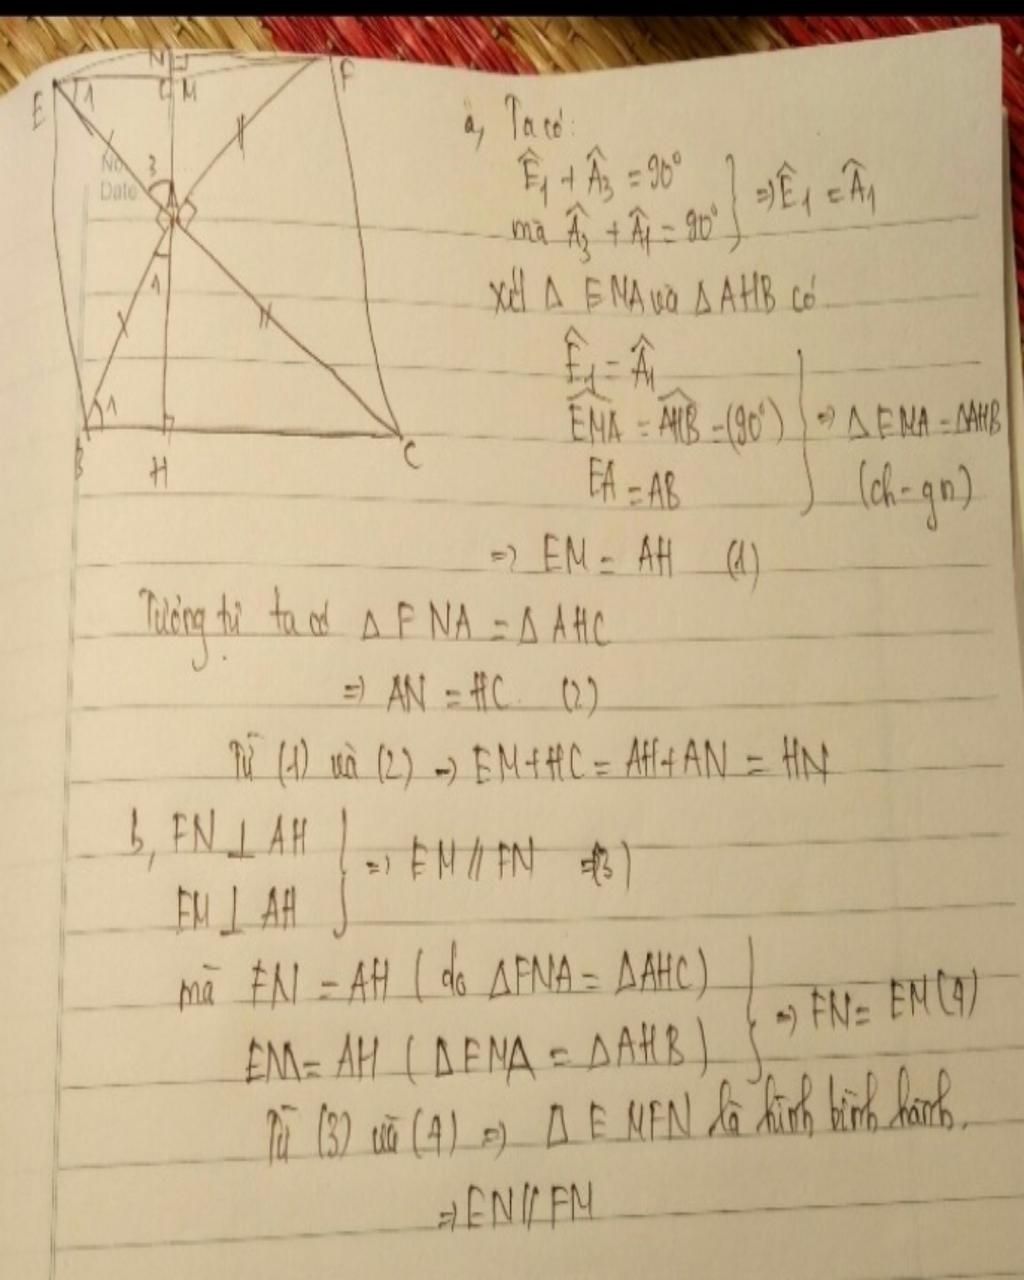 N
F
E
1
M
No
3
Date
A
1
1
B
H
C
a, Ta có:
Ê₁ + Â₃ = 90°
mà Â₃ + Â₁ = 90°
} ⇒ Ê₁ = Â₁
xét Δ EMA và Δ AHB có
Ê₁ = Â₁
EMA = AHB = (90°)
EA = AB
} ⇒ Δ EMA = ΔAHB
(ch - gn)
⇒ EM = AH (1)
Tương tự ta có Δ FNA = Δ AHC
⇒ AN = HC (2)
Từ (1) và (2) → EM + HC = AH + AN = HN
b, FN ⊥ AH
EM ⊥ AH
} ⇒ EM // FN (3)
mà FN = AH ( do ΔFNA = ΔAHC)
EM = AH ( ΔEMA = ΔAHB )
} ⇒ FN = EM (4)
Từ (3) và (4) ⇒ Δ EMFN là hình bình hành.
⇒ EN // FM